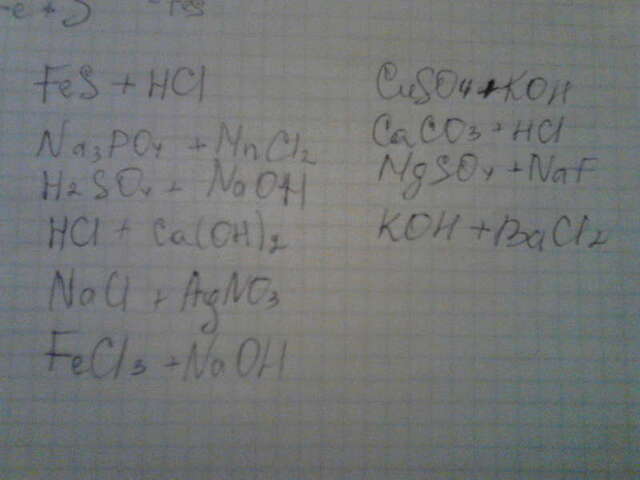 FeS + HCl
Na₃PO₄ + MnCl₂
H₂SO₄ + NaOH
HCl + Ca(OH)₂
NaCl + AgNO₃
FeCl₃ + NaOH
CuSO₄ + KOH
CaCO₃ + HCl
MgSO₄ + NaF
KOH + BaCl₂